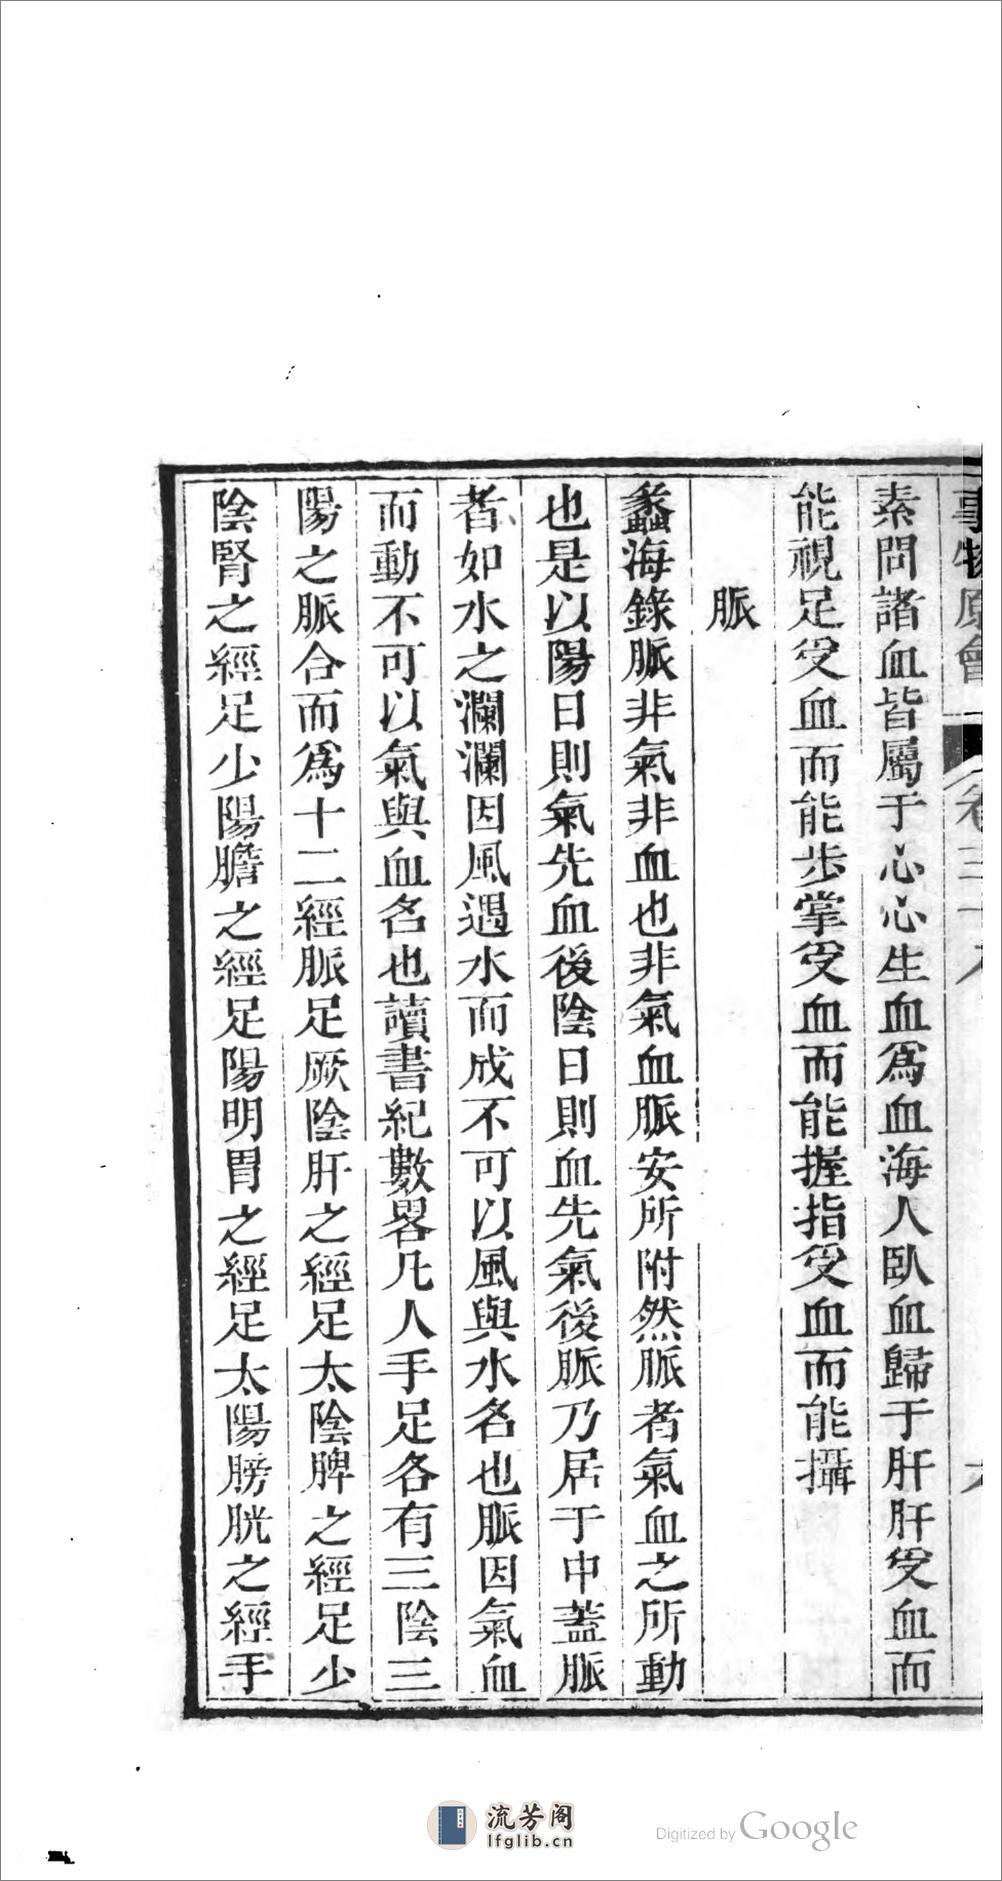 事物原會
素問諸血皆屬于心心生血爲血海人臥血歸于肝肝受血而
能視足受血而能步掌受血而能握指受血而能攝
脈
蠡海錄脈非氣非血也非氣血脈安所附然脈者氣血之所動
也是以陽日則氣先血後陰日則血先氣後脈乃居于中蓋脈
者如水之瀾瀾因風遇水而成不可以風與水名也脈因氣血
而動不可以氣與血名也讀書紀數畧凡人手足各有三陰三
陽之脈合而爲十二經脈足厥陰肝之經足太陰脾之經足少
陰腎之經足少陽膽之經足陽明胃之經足太陽膀胱之經手
流芳阁
lfglib.cn
Digitized by Google